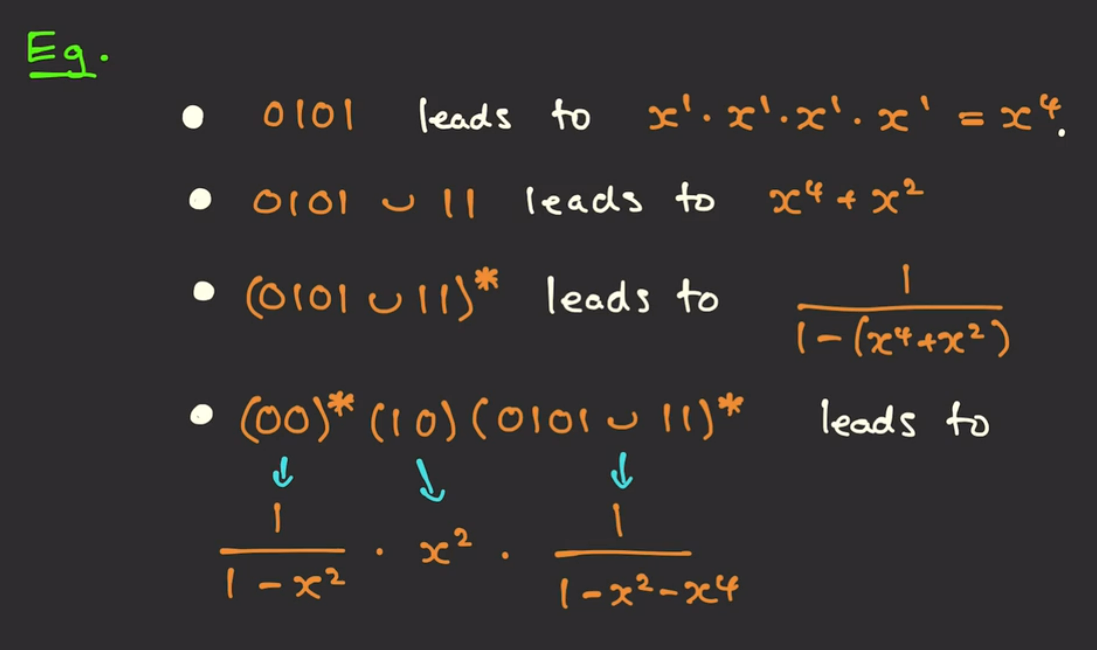 Eg.
• 0101 leads to x¹· x¹· x¹· x¹ = x⁴.
• 0101 ∪ 11 leads to x⁴ + x²
• (0101 ∪ 11)* leads to 1/(1-(x⁴+x²))
• (00)* (10) (0101 ∪ 11)* leads to
↓ ↓ ↓
1/(1-x²) · x² · 1/(1-x²-x⁴)